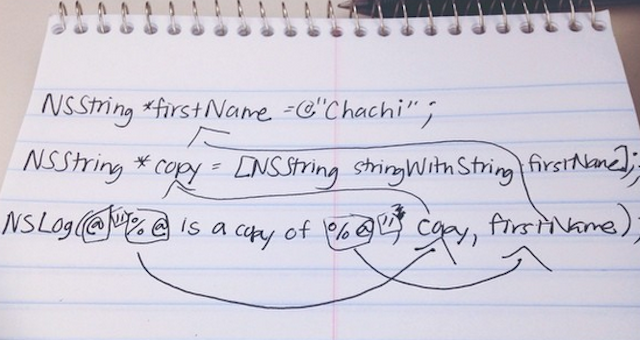 NSString *firstName = @"Chachi";
NSString * copy = [NSString stringWithString:firstName];
NSLog(@"%@ is a copy of %@", copy, firstName);